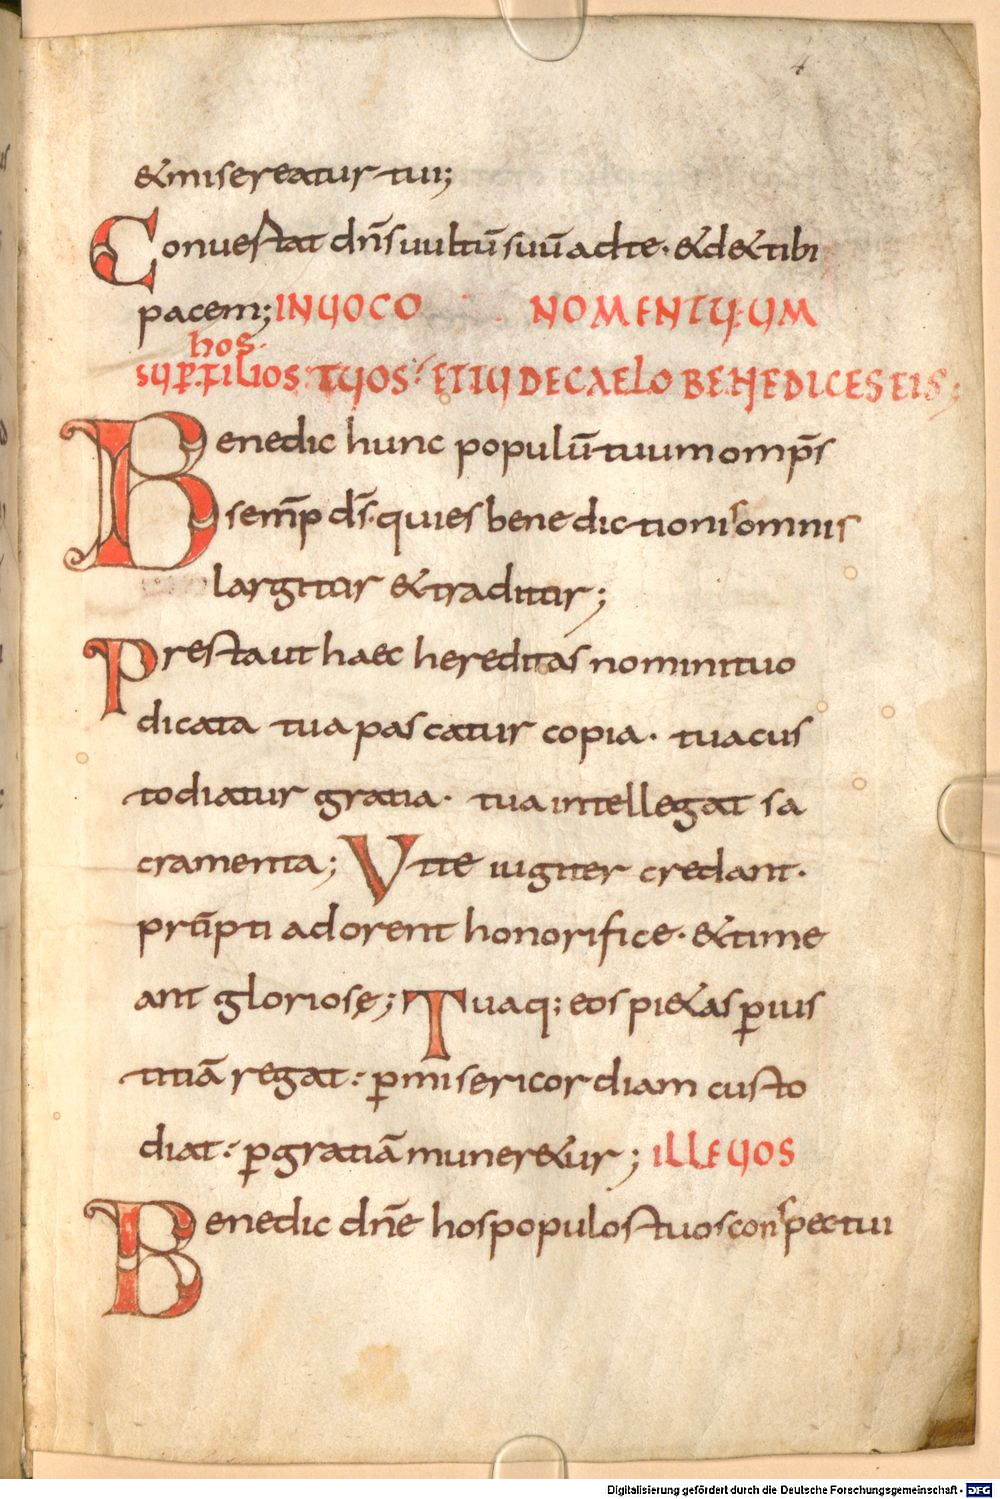 4
&misereatur tui;
Conuestat dn̄s uultū suū ad te· & d& tibi
pacem; INUOCO NOMEN TUUM
hos·
SUP̲ FILIOS TUOS· ET TU DE CAELO BENEDICES EIS;
Benedic hunc populū tuum omp̄s
sem̄p d̄s· qui es benedictionis omnis
largitur & traditur;
Presta ut haec hereditas nomini tuo
dicata tua pascatur copia· tua cus
todiatur gratia· tua intellegat sa
cramenta; Vt te iugiter credant·
prūpti adorent honorifice· & time
ant gloriosę; Tuaq; eos pi&as p̲ ius
titiā regat: p̲ misericordiam custo
diat: p̲ gratiā muner&ur; ILLE UOS
Benedic dn̄e hos populos tuos conspectui
Digitalisierung gefördert durch die Deutsche Forschungsgemeinschaft - DFG